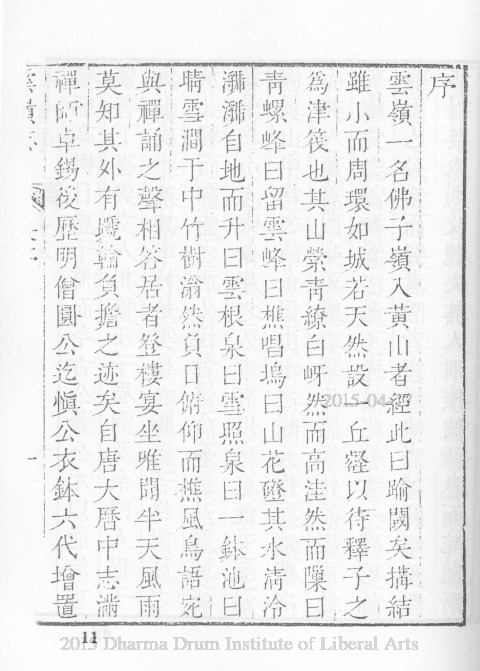 序
雲嶺一名佛子嶺入黄山者經此曰踰閾矣搆結
雖小而周環如城若天然設一丘壑以待釋子之
爲津筏也其山縈青繚白岈然而高洼然而隟曰
青螺峰曰留雲峰曰樵唱塢曰山花磴其水清泠
潏潏自地而升曰雲根泉曰雪照泉曰一鉢池曰
晴雪澗于中竹樹滃然負日俯仰而搖風鳥語泉
與禪誦之聲相答居者登樓宴坐唯聞半天風雨
莫知其外有蹏輪負擔之迹矣自唐大曆中志滿
禪師卓錫後歷明僧圓公迄愼公衣鉢六代增置
雲嶺志
序
一
11
2015-04
2015 Dharma Drum Institute of Liberal Arts